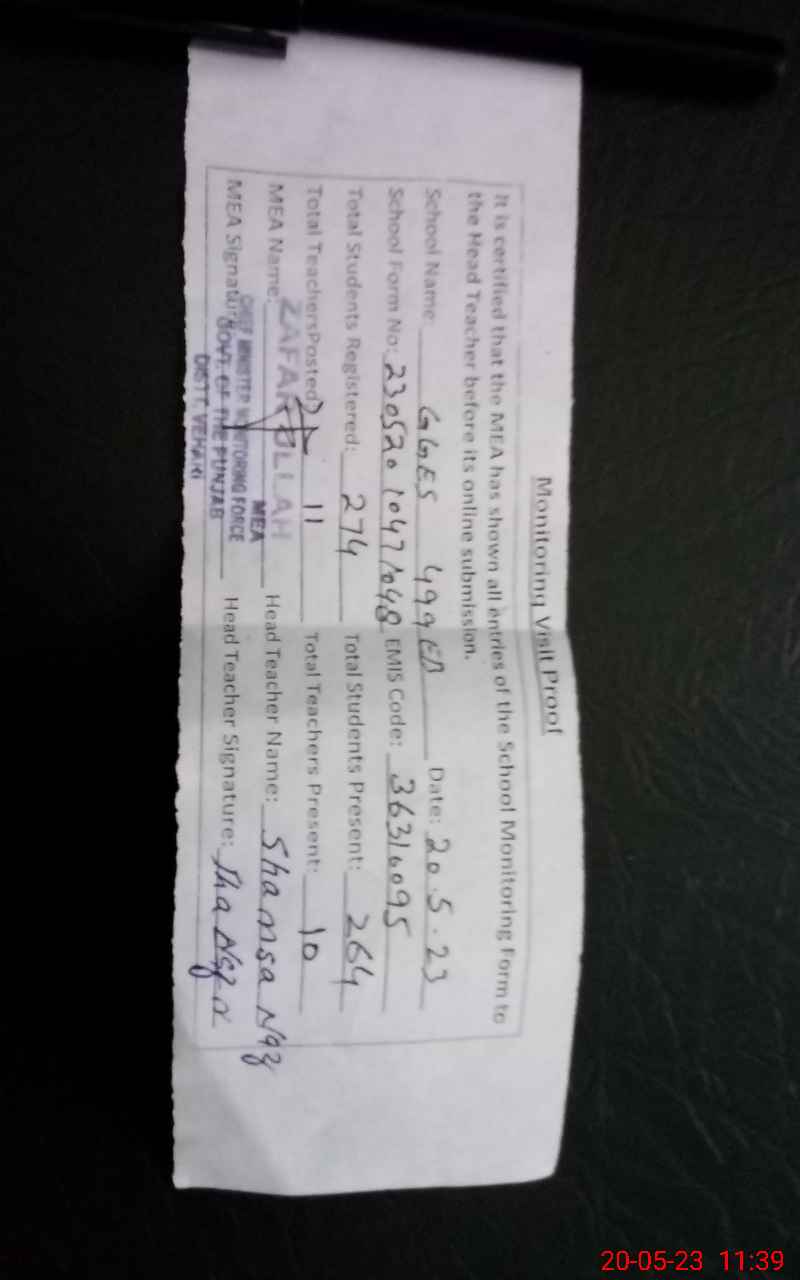 Monitoring Visit Proof
It is certified that the MEA has shown all entries of the School Monitoring Form to
the Head Teacher before its online submission.
School Name: GGES 499EB Date: 20.5.23
School Form No: EMIS Code: 36316095
Total Students Registered: 274 Total Students Present: 264
Total TeachersPosted: 11 Total Teachers Present: 10
MEA Name: ZAFAR ULLAH Head Teacher Name: Shamsa Naz
MEA Signature: Head Teacher Signature:
MEA
CHIEF MINISTER MONITORING FORCE
GOVT. OF THE PUNJAB
DISTT. VEHARI
20-05-23 11:39